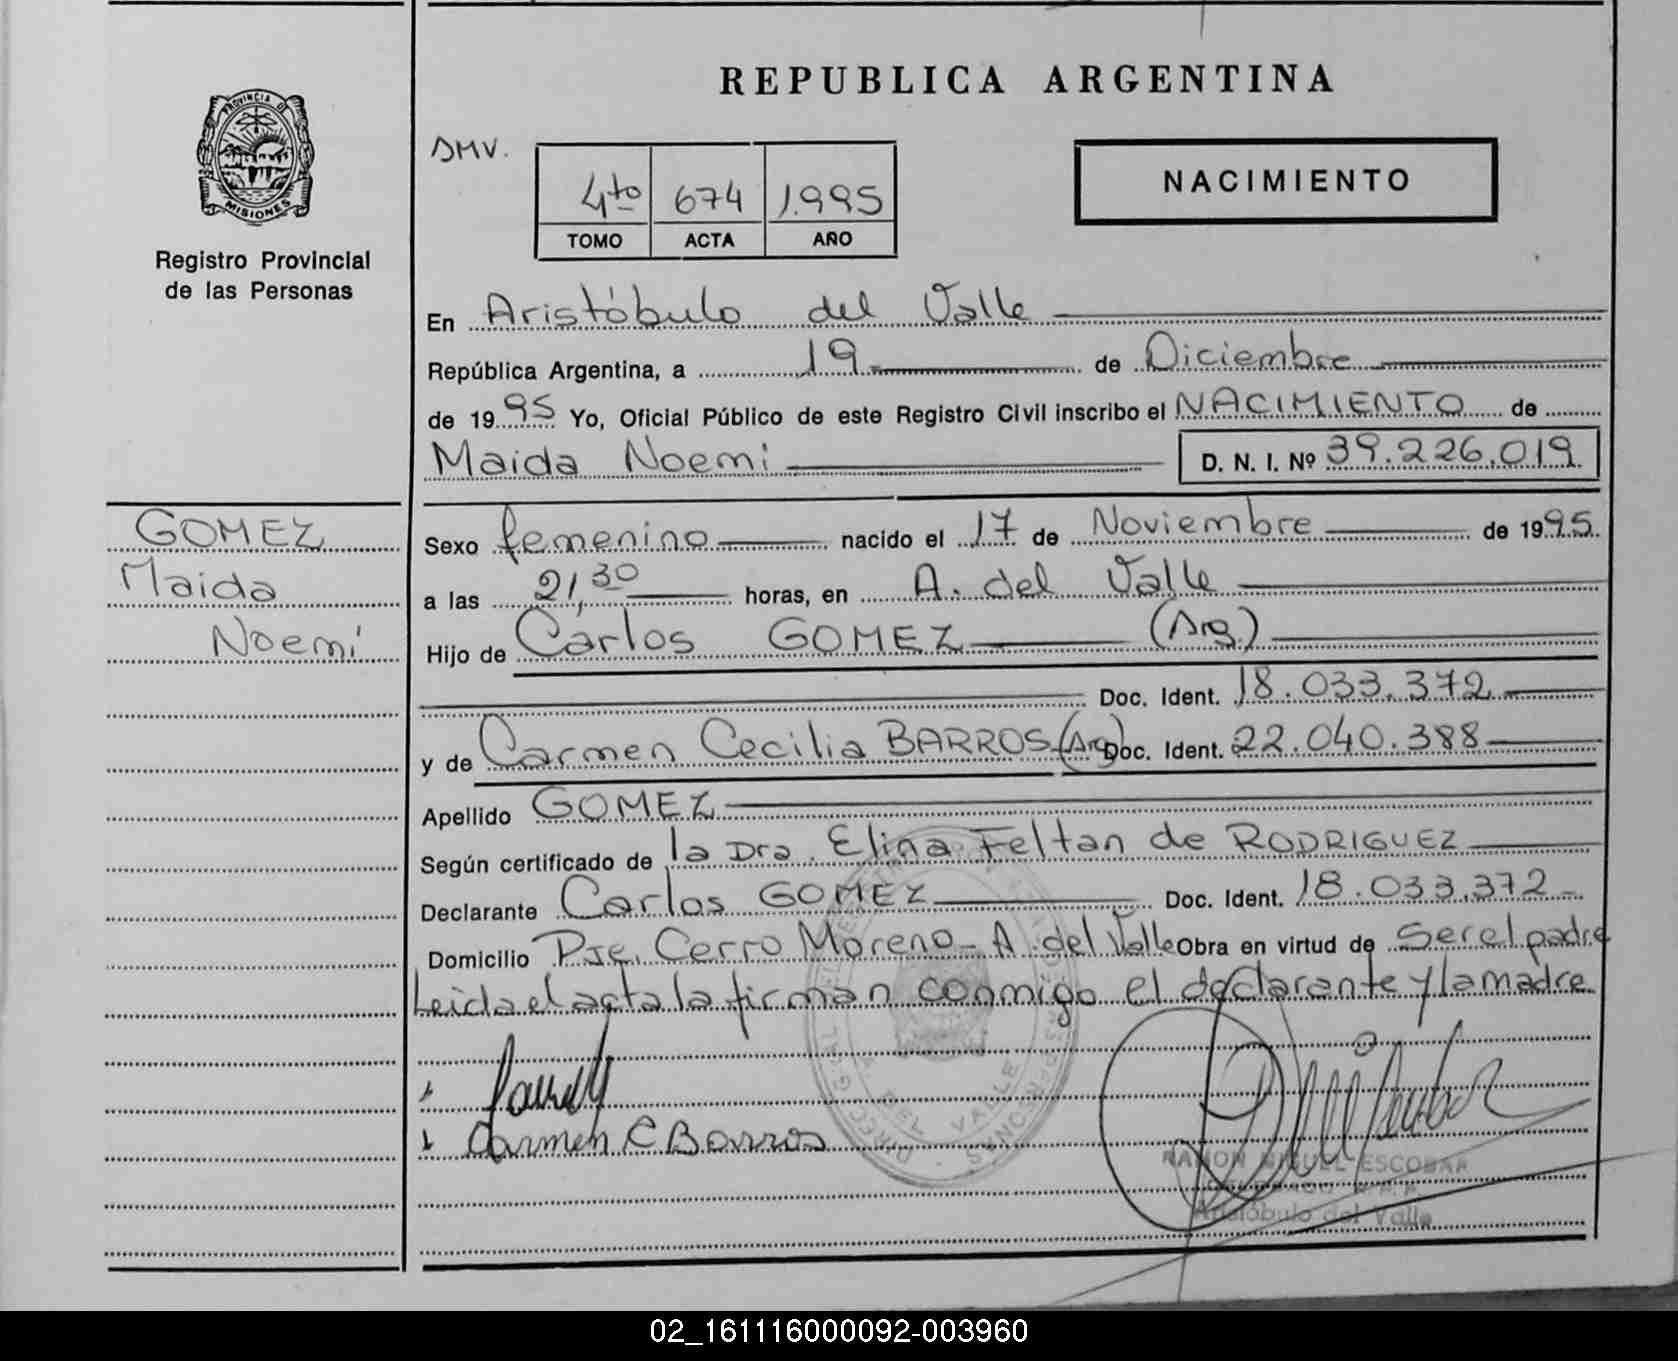 REPUBLICA ARGENTINA
PROVINCIA DE
MISIONES
Registro Provincial
de las Personas
DMV.
4to 674 1.995
TOMO ACTA AÑO
NACIMIENTO
En Aristóbulo del Valle
República Argentina, a 19 de Diciembre
de 1995 Yo, Oficial Público de este Registro Civil inscribo el NACIMIENTO de
Maida Noemi D. N. I. Nº 39.226.019
GOMEZ
Maida
Noemi
Sexo femenino nacido el 17 de Noviembre de 1995.
a las 21,30 horas, en A. del Valle
Hijo de Carlos GOMEZ (Arg.)
Doc. Ident. 18.033.372
y de Carmen Cecilia BARROS (Arg) Doc. Ident. 22.040.388
Apellido GOMEZ
Según certificado de la Dra. Elina Feltan de RODRIGUEZ
Declarante Carlos GOMEZ Doc. Ident. 18.033.372
Domicilio Pje. Cerro Moreno - A. del Valle Obra en virtud de ser el padre
Leida el acta la firman conmigo el declarante y la madre
Carmen C Barros
DEL VALLE
RAMON MIGUEL ESCOBAR
Aristóbulo del Valle
02_161116000092-003960